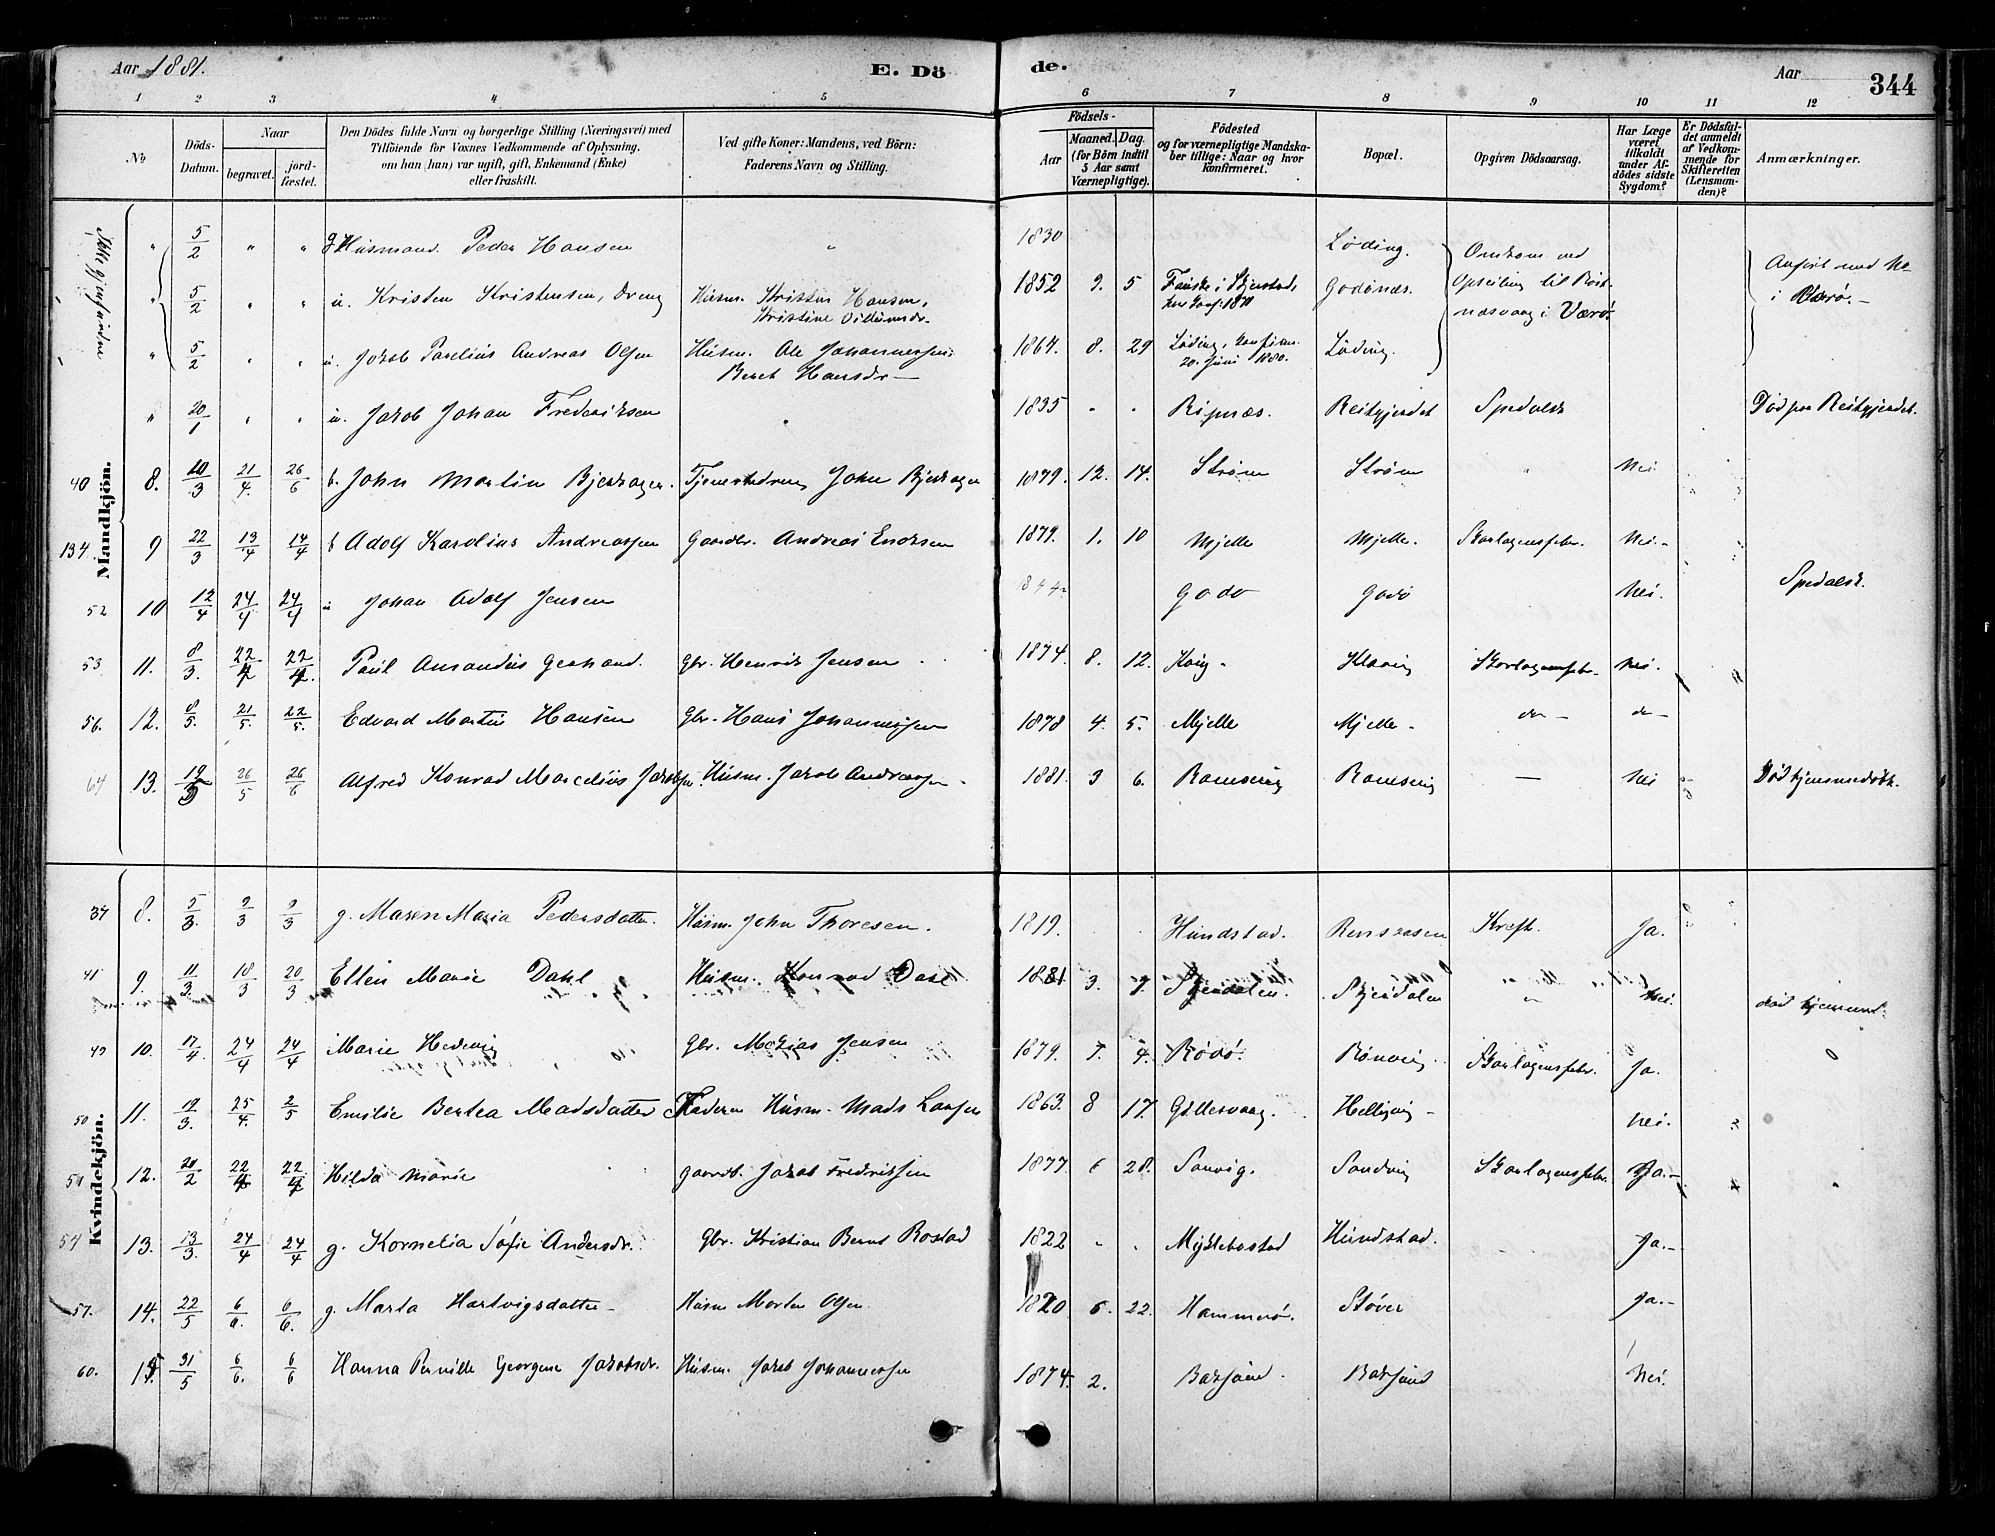 Aar 1881.
E. Dö
de.
Aar
344
1 2 3 4 5 6 7 8 9 10 11 12
No
Döds-
Datum.
Naar
begravet.
jord-
fæstet.
Den Dödes fulde Navn og borgerlige Stilling (Næringsvei) med
Tilföiende for Voxnes Vedkommende af Oplysning,
om han (hun) var ugift, gift, Enkemand (Enke)
eller fraskilt.
Ved gifte Koner: Mandens, ved Börn:
Faderens Navn og Stilling.
Födsels-
Aar
Maaned. Dag.
(for Börn indtil
5 Aar samt
Værnepligtige).
Födested
og for værnepligtige Mandska-
ber tillige: Naar og hvor
konfirmeret.
Bopæl.
Opgiven Dödsaarsag.
Har Læge
været
tilkaldt
under Af-
dödes sidste
Sygdom?
Er Dödsfal-
det anmeldt
af Vedkom-
mende for
Skifteretten
(Lensman-
den)?
Anmærkninger.
Mandkjön.
" 5/2 " " g Husmand Peder Hansen " 1830 Löding. Omkom ved
" 5/2 u. Kristen Kristensen, Dreng Husm. Kristen Hansen, 1852 9. 5 Fauske i Skjerstad, Godönæs. Opseiling til Röst-
Kristine næsvaag i Værö. Anfört med No
i Værö.-
" 5/2 " " u. Jakob Parelius Andreas Olsen Husm. Ole Johannessen 1864. 8. 29 Löding, konfirm. Löding.
Beret Hansdr- 20. Juni 1880.
" 20/1 " " u. Jakob Johan Frederiksen 1835 " " Ripnæs. Reitgjerdet Spedalsk Död paa Reitgjerdet.
40 8. 10/3 21/4. 26/6 b. John Martin Bjerkager. Tjenestedreng John Bjerkager 1879. 12. 14. Ström Ström " Nei
134 9 22/3 13/4 14/4 b Adolf Karolius Andreassen Gaardbr. Andreas Enoksen 1879. 1. 10 Mjelle Mjelle. Skarlagensfebr. Nei.-
52 10 12/4 24/4 24/4 u Johan Adolf Jensen 1844 Godö Godö Nei. Spedalsk.
53 11. 8/3. 22/4 22/4. Paul Amandus Gerhard. Gbr. Henrik Jensen 1874. 8. 12. Skarlagensfebr. Nei.
56. 12. 8/5. 21/5 22/5. Edvard Martin Hansen Gbr. Hans Johannessen 1878 4. 5. Mjelle Mjelle. do- do-
64 13. 19/5 26/5 26/6 Alfred Konrad Marcelius Jakobsen. Husm. Jakob Andreassen. 1881. 3 6. Ramsvig Ramsvig - Nei Död hjemmedöbt.
Kvindekjön.
37 8. 5/3. 9/3 9/3 g. Maren Maria Pedersdatter. Husm. John Thoresen. 1819. Hundstad. Rensaasen Kræft. Ja.
41 9. 11/3. 18/3 20/3 Ellen Marie Dahl Husm. Konrad Dahl 1881 3. 7. Skjerdalen. Skjerdalen " Nei. död hjemmed.
49 10. 17/4. 24/4 24/4 Marie Hedevig Gbr. Mathias Jensen 1879. 7. 4. Rödö. Rönvig Skarlagensfebr. Ja.
50 11. 19/3. 25/4. 2/5 Emilie Bertea Madsdatter Faderen Husm. Mads Larsen 1863. 8 17. Gillesvaag. Helligvig- Nei.
51 12. 28/2 22/4 22/4 Hilda Marie Gaardb. Jakob Fredriksen 1877. 6 28. Sanvig. Sandvig Skarlagensfebr. Ja.-
54 13. 13/3. 24/4 24/4 g. Kornelia Sofie Andersdr. Gbr. Kristian Bernt Rostad 1822 - " Myklebostad Hundstad. Ja.-
57. 14. 22/5 6/6. 6/6. g. Marta Hartvigsdatter- Husm Morten Olsen. 1820 6. 22. Hammerö. Stöver Ja.-
60. 15. 31/5 6/6. 6/6 Hanna Pernille Georgine Jakobsdr. Husm. Jakob Johannessen 1874. 2. Baksund. Baksund Nei.